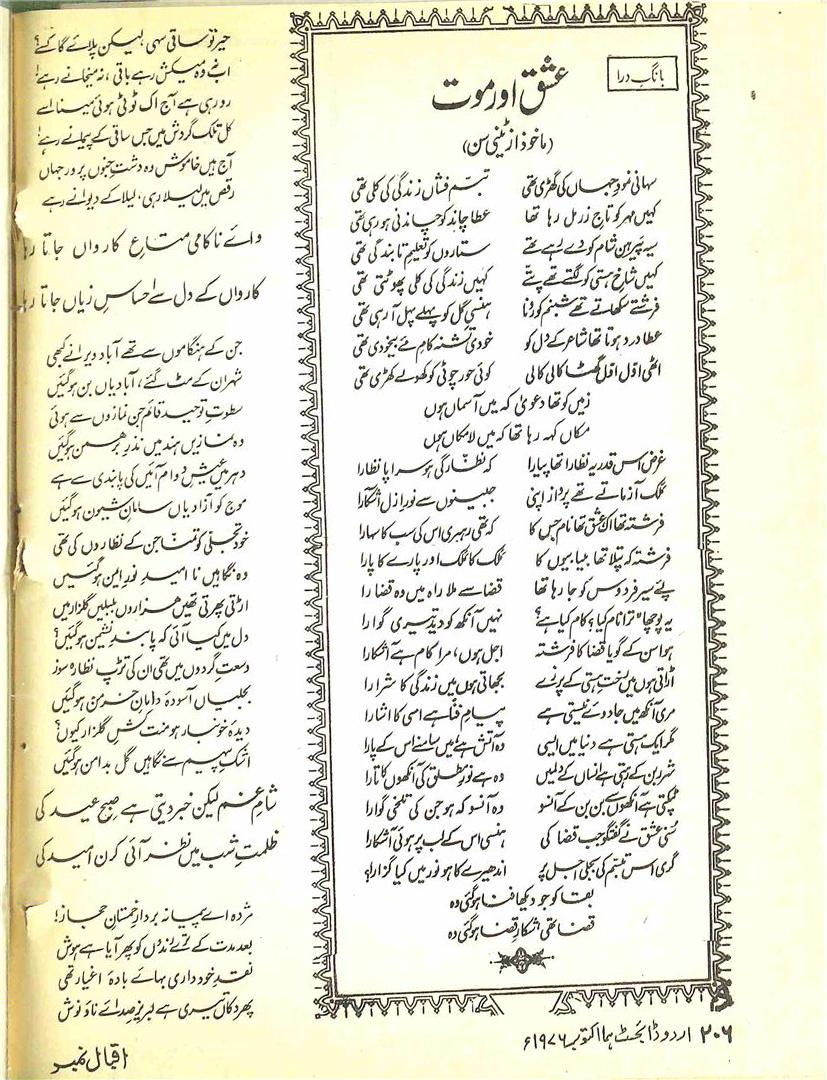 بانگِ درا
عشق اور موت
(ماخوذ از ٹینی سن)
سہانی نمودِ جہاں کی گھڑی تھی تبسم فشاں زندگی کی کلی تھی
کہیں مہر کو تاجِ زر مل رہا تھا عطا چاند کو چاندنی ہو رہی تھی
سیہ پیرہن شام کو دے رہے تھے ستاروں کو تعلیمِ تابندگی تھی
کہیں شاخِ ہستی کو لگتے تھے پتے کہیں زندگی کی کلی پھوٹتی تھی
فرشتے سکھاتے تھے شبنم کو رونا ہنسی گل کو پہلے پہل آ رہی تھی
عطا درد ہوتا تھا شاعر کے دل کو خودی تشنہ کامِ مئے بیخودی تھی
اٹھی اول اول گھٹا کالی کالی کوئی حور چوٹی کو کھولے کھڑی تھی
زمیں کو تھا دعویٰ کہ میں آسماں ہوں
مکاں کہہ رہا تھا کہ میں لامکاں ہوں
غرض اس قدر یہ نظارا تھا پیارا کہ نظارگی ہو سراپا نظارا
ملک آزماتے تھے پرواز اپنی جبینوں سے نورِ ازل آشکارا
فرشتہ تھا اک عشق تھا نام جس کا کہ تھی رہبری اس کی سب کا سہارا
فرشتہ کہ پتلا تھا بیتابیوں کا ملک کا ملک اور پارے کا پارا
پئے سیر فردوس کو جا رہا تھا قضا سے ملا راہ میں وہ قضا را
یہ پوچھا "ترا نام کیا؟ کام کیا ہے؟ نہیں آنکھ کو دید تیری گوارا
ہوا سن کے گویا قضا کا فرشتہ اجل ہوں، مرا کام ہے آشکارا
اڑاتی ہوں میں رختِ ہستی کے پرزے بجھاتی ہوں میں زندگی کا شرارا
مری آنکھ میں جادوئے نیستی ہے پیامِ فنا ہے اسی کا اشارا
مگر ایک ہستی ہے دنیا میں ایسی وہ آتش ہے میں سامنے اس کے پارا
شرر بن کے رہتی ہے انساں کے دل میں وہ ہے نورِ مطلق کی آنکھوں کا تارا
ٹپکتی ہے آنکھوں سے بن بن کے آنسو وہ آنسو کہ ہو جن کی تلخی گوارا
سنی عشق نے گفتگو جب قضا کی ہنسی اس کے لب پر ہوئی آشکارا
گری اس تبسم کی بجلی اجل پر اندھیرے کا ہو نور میں کیا گزارا؟
بقا کو جو دیکھا فنا ہو گئی وہ
قضا تھی شکارِ قضا ہو گئی وہ
خیر تو ساقی سہی لیکن پلائے گا کسے؟
اب نہ وہ میکش رہے باقی، نہ میخانے رہے!
رو رہی ہے آج اک ٹوٹی ہوئی مینا اسے
کل تلک گردش میں جس ساقی کے پیمانے رہے!
آج ہیں خاموش وہ دشتِ جنوں پرور جہاں
رقص میں لیلا رہی، لیلا کے دیوانے رہے
وائے ناکامی متاعِ کارواں جاتا رہا
کارواں کے دل سے احساسِ زیاں جاتا رہا
جن کے ہنگاموں سے تھے آباد ویرانے کبھی
شہر ان کے مٹ گئے، آبادیاں بن ہو گئیں
سطوتِ توحید قائم جن نمازوں سے ہوئی
وہ نمازیں ہند میں نذرِ برہمن ہو گئیں
دہر میں عیشِ دوام آئیں کی پابندی سے ہے
موج کو آزادیاں سامانِ شیون ہو گئیں
خود تجلی کو تمنا جن کے نظاروں کی تھی
وہ نگاہیں نا امیدِ نورِ ایمن ہو گئیں
اڑتی پھرتی تھیں ہزاروں بلبلیں گلزار میں
دل میں کیا آئی کہ پابندِ نشیمن ہو گئیں؟
وسعتِ گردوں میں تھی ان کی تڑپ نظارہ سوز
بجلیاں آسودۂ دامانِ خرمن ہو گئیں
دیدۂ خونبار ہو منت کشِ گلزار کیوں؟
اشکِ پیہم سے نگاہیں گل بدامن ہو گئیں
شامِ غم لیکن خبر دیتی ہے صبحِ عید کی
ظلمتِ شب میں نظر آئی کرن امید کی
مژدہ اے پیمانہ بردارِ خمستانِ حجاز!
بعد مدت کے ترے رندوں کو پھر آیا ہے ہوش
نقدِ خودداری بہائے بادۂ اغیار تھی
پھر دکاں تیری ہے لبریزِ صدائے ناؤ نوش
۲۰۶ اردو ڈائجسٹ ہما اکتوبر ۱۹۷۶ء
اقبال نمبر